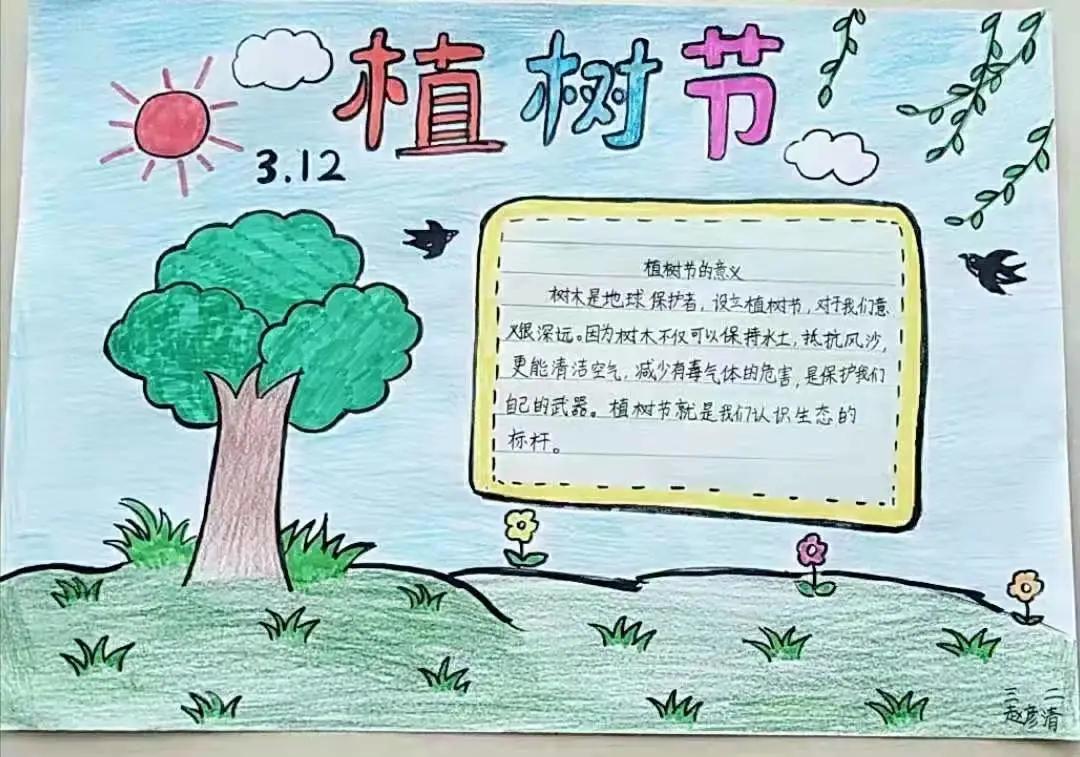 植树节
3.12
植树节的意义
树木是地球保护者，设立植树节，对于我们意
义很深远。因为树木不仅可以保持水土，抵抗风沙，
更能清洁空气，减少有毒气体的危害，是保护我们
自己的武器。植树节就是我们认识生态的
标杆。
三 二
赵彦清